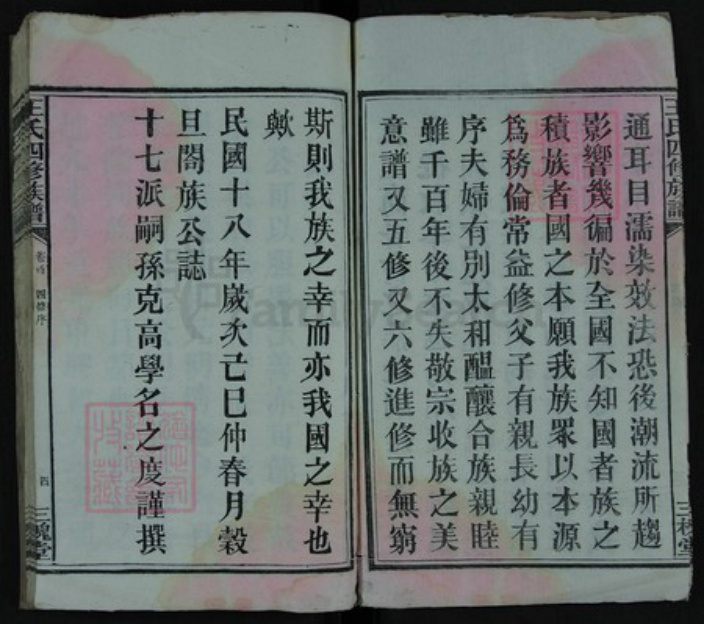 王氏四修族譜
通耳目濡染效法恐後潮流所趨
影響幾徧於全國不知國者族之
積族者國之本願我族眾以本源
爲務倫常益修父子有親長幼有
序夫婦有別太和醞釀合族親睦
雖千百年後不失敬宗收族之美
意譜又五修又六修進修而無窮
三槐堂
斯則我族之幸而亦我國之幸也
歟
民國十八年歲次己巳仲春月穀
旦閤族公誌
十七派嗣孫克高學名之度謹撰
王氏四修族譜
卷首 四修序
四
三槐堂
FamilySearch